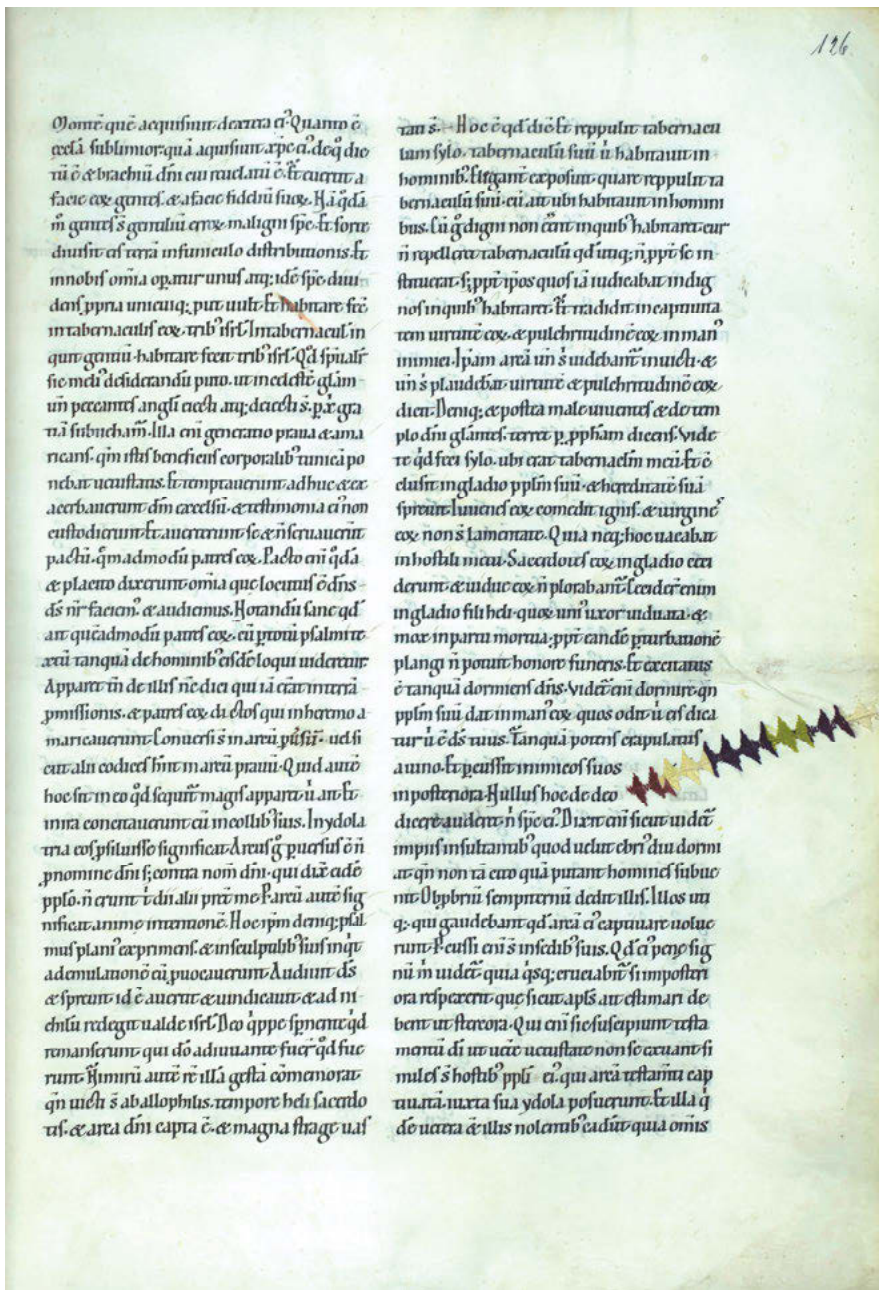 126
Monte quē acquisiuit dextera ei᾽. Quanto ē
ecclā sublimior quā aquisiuit xp̄c ei᾽. de q̇ dic
tū ē & brachiū dn̄i cui reuelatū ē. Et eiecit a
facie eoꝝ gentes. & a facie fideliū suoꝝ.
m̄ gentes s̄ gentiliū erroꝝ maligni sp̄c. Et sorte
diuisit eis terrā in funiculo distributionis. Et
in nobis om̄ia op̄atur unus atq; idē sp̄c. diui
dens ꝓpria unicuiq; put uult. Et habitare fec̄
in tabernaculis eoꝝ trib᾽ isrl̄. In tabernacul̄ in
quit gentiū habitare fecit trib᾽ isrl̄. Qd̄ sp̄ualit̄
sic meli᾽ desiderandū puto. ut in celestē glām
un̄ peccantes angl̄i eiecti atq; deiecti s̄. p̄ x̄p̄i gra
tiā subuehamur. Illa eni generatio praua & ama
ricans. qm̄ istis beneficiis corporalib᾽ tunicā po
nebat uetustatis. Et temptauerunt adhuc & ex
acerbauerunt dm̄ excelsū. & testimonia ei᾽ non
custodierunt. Et auerterunt se & n̄ seruauerūt
pactū. q̄madmodū patres eoꝝ. Pacto eni q̇dā
& placito dixerunt om̄ia que locutus ē dn̄s
ds̄ nr̄ faciem᾽. & audiemus. Notandū sane qd̄
ait queādmodū patres eoꝝ. cū p̄ totū psalmi te
xtū tanquā de hominib᾽ eisdē loqui uideretur.
Apparet tn̄ de illis nc̄ dici qui iā erāt in terrā
ꝓmissionis. & patres eoꝝ dictos qui in heremo a
maricauerunt. Conuersi s̄ in arcū ꝑuersū. uel si
cut alii codices hn̄t in arcū prauū. Quid autē
hoc sit in eo qd̄ sequit᾽ magis apparet ū ait. Et
in ira concitauerunt eū in collib᾽ suis. In ydola
triā eos ꝓsiluisse significat. Arcus g̊ ꝑuersus ē n̄
ꝓ nomine dn̄i s; contra nom̄ dn̄i. qui dix̄ eidē
pplo. n̄ erunt t̄ dii alii pret̄ me. P arcū autē sig
nificat anime intentionē. Hoc ip̄m deniq; psal
mus plani᾽ exprimens. & in sculptilib᾽ suis inq̇t
ad emulationē eū ꝓuocauerunt. Audiuit ds̄
& spreuit id ē auertit & uindicauit. & ad ni
chilū redegit ualde isrl̄. Deo q̇ppe spnente q̇d
remanserunt qui dō adiuuante fuer̄ q̇d fue
runt. Nimirū autē rē illā gestā cōmemorat.
qn̄ uicti s̄ ab allophilis. tempore heli sacerdo
tis. & arca dn̄i capta ē. & magna strage uas
tati s̄. Hoc ē qd̄ dic̄. Et reppulit tabernacu
lum sylo. tabernaculū suū ū habitauit in
hominib᾽. Eleganter exposuit quare reppulit ta
bernaculū suū. cū ait ubi habitauit in homini
bus. Cū g̊ digni non eēnt in quib᾽ habitaret. cur
n̄ repelleret tabernaculū qd̄ utiq; n̄ ppt̄ se in
stituerat. s; ppt̄ ip̄os quos iā iudicabat indig
nos in quib᾽ habitaret. Et tradidit in captiuita
tem uirtutē eoꝝ. & pulchritudinē eoꝝ in man᾽
inimici. Ip̄am arcā un̄ s̄ uidebant᾽ inuicti. &
un̄ s̄ plaudebāt uirtutē & pulchritudinē eoꝝ
dicit. Deniq; & postea male uiuentes & de tem
plo dn̄i gl̄antes. terret p̄ ppham dicens. Vide
te qd̄ feci sylo. ubi erat tabernaclm̄ meū. Et cō
clusit in gladio pplm̄ suū. & hereditatē suā
spreuit. Iuuenes eoꝝ comedit ignis. & uirgines
eoꝝ non s̄ lamentate. Quia neq; hoc uacabat
in hostili metu. Sacerdotes eoꝝ in gladio ceci
derunt. & uidue eoꝝ n̄ plorabant᾽. Ceciderēt enim
in gladio filii heli. quoꝝ uni᾽ uxor uiduata. &
mox in partu mortua; ppt̄ eandē ꝑturbationē
plangi n̄ potuit honore funeris. Et excitatus
ē tanquā dormiens dn̄s. Videt᾽ eni dormire qn̄
pplm̄ suū dat in man᾽ eoꝝ quos odit ū eis dica
tur ū ē ds̄ tuus. Tanquā potens crapulatus
a uino. Et ꝑcussit inimicos suos
in posteriora. Nullus hoc de deo
dicere auderet n̄ sp̄c ei᾽. Dixit eni sicut uidet᾽
impiis insultantib᾽ quod uelut ebri᾽ diu dormi
at qn̄ non tā cito quā putant homines subue
nit. Obpbriū sempiternū dedit illis. Illos uti
q; qui gaudebant qd̄ arcā ei᾽ captiuare uolue
runt. Percussi eni s̄ in sedib᾽ suis. Qd̄ ei᾽ pene sig
nū m̄ uidet᾽ quia q̇sq; cruciabit᾽ si in posteri
ora respexerit que sicut apl̄s ait estimari de
bent ut stercora. Qui eni sic suscipiunt testa
mentū di ut uetere uetustate non se exuant. si
miles s̄ hostib᾽ ppli ei᾽. qui arcā testam̄ti cap
tiuatā. iuxta sua ydola posuerunt. Et illa q̇
dē uetera & illis nolentib᾽ cadūt quia omis